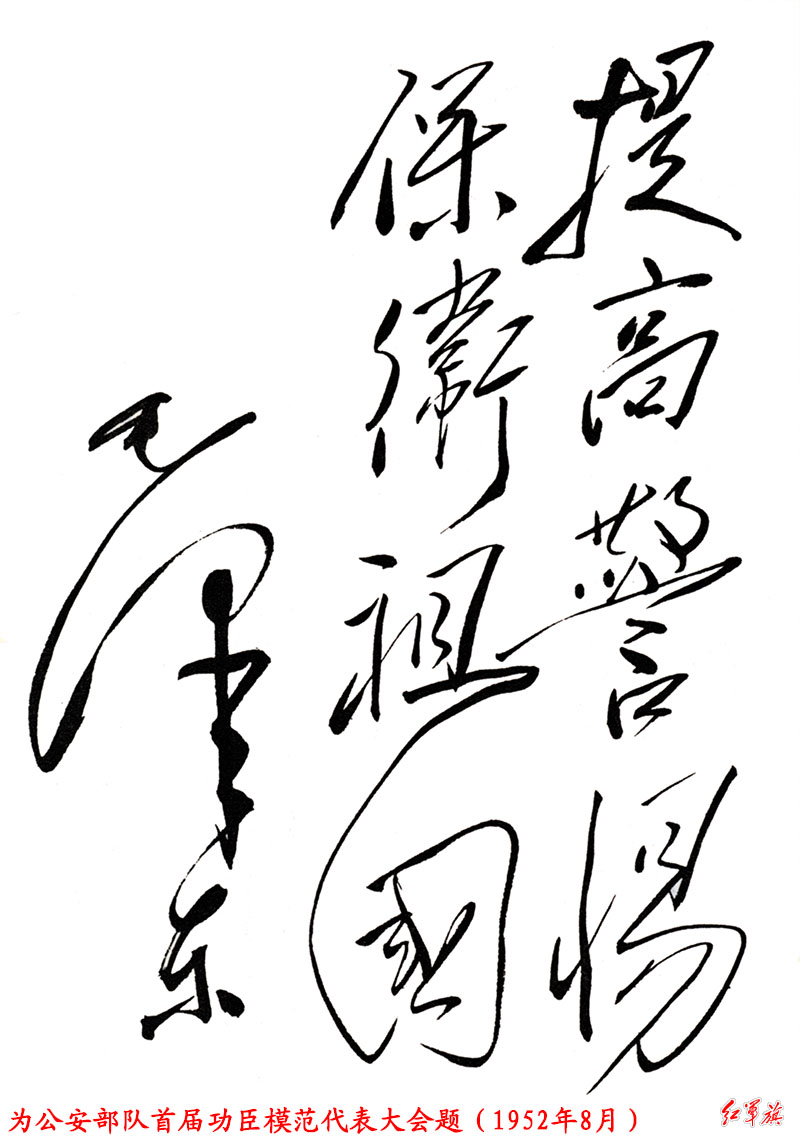 提高警惕
保衛祖國
毛泽东
为公安部队首届功臣模范代表大会题（1952年8月）
红军旗